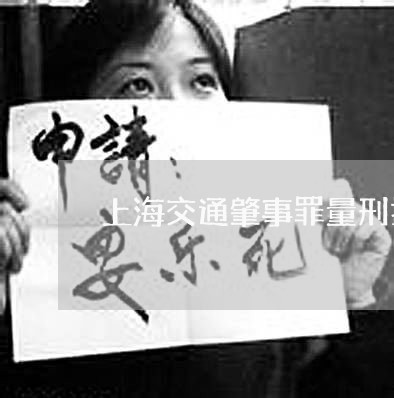 申請：
上海交通肇事罪量刑
安乐死